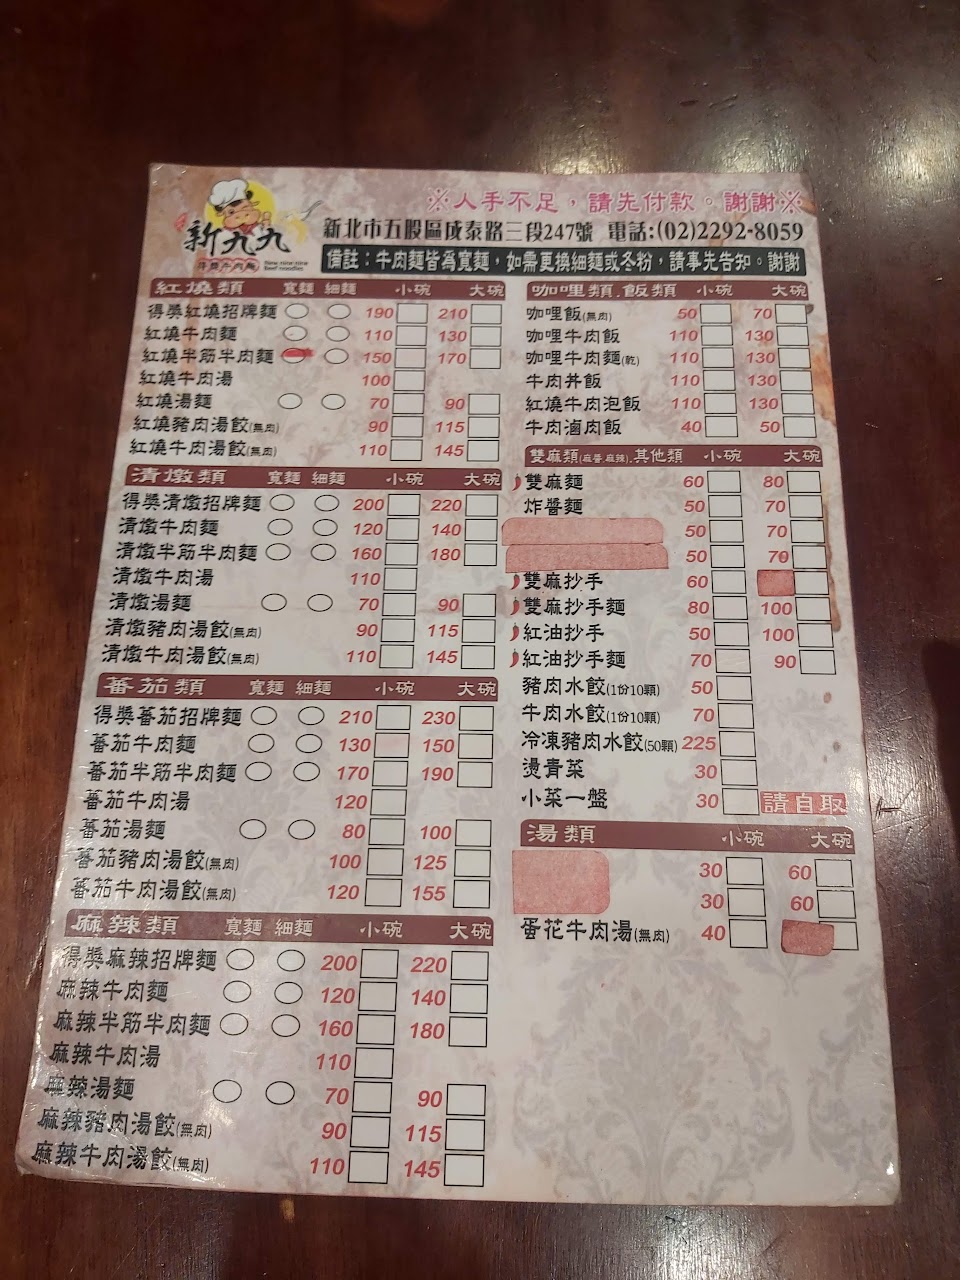 ※人手不足，請先付款。謝謝※
新九九
New nine nine
Beef noodles
新北市五股區成泰路三段247號 電話:(02)2292-8059
備註：牛肉麵皆為寬麵，如需更換細麵或冬粉，請事先告知。謝謝
紅燒類 寬麵 細麵 小碗 大碗
得獎紅燒招牌麵 190 210
紅燒牛肉麵 110 130
紅燒半筋半肉麵 150 170
紅燒牛肉湯 100
紅燒湯麵 70 90
紅燒豬肉湯餃(無肉) 90 115
紅燒牛肉湯餃(無肉) 110 145
清燉類 寬麵 細麵 小碗 大碗
得獎清燉招牌麵 200 220
清燉牛肉麵 120 140
清燉半筋半肉麵 160 180
清燉牛肉湯 110
清燉湯麵 70 90
清燉豬肉湯餃(無肉) 90 115
清燉牛肉湯餃(無肉) 110 145
蕃茄類 寬麵 細麵 小碗 大碗
得獎蕃茄招牌麵 210 230
蕃茄牛肉麵 130 150
蕃茄半筋半肉麵 170 190
蕃茄牛肉湯 120
蕃茄湯麵 80 100
蕃茄豬肉湯餃(無肉) 100 125
蕃茄牛肉湯餃(無肉) 120 155
麻辣類 寬麵 細麵 小碗 大碗
得獎麻辣招牌麵 200 220
麻辣牛肉麵 120 140
麻辣半筋半肉麵 160 180
麻辣牛肉湯 110
麻辣湯麵 70 90
麻辣豬肉湯餃(無肉) 90 115
麻辣牛肉湯餃(無肉) 110 145
咖哩類.飯類 小碗 大碗
咖哩飯(無肉) 50 70
咖哩牛肉飯 110 130
咖哩牛肉麵(乾) 110 130
牛肉丼飯 110 130
紅燒牛肉泡飯 110 130
牛肉滷肉飯 40 50
雙麻類(麻醬.麻辣).其他類 小碗 大碗
雙麻麵 60 80
炸醬麵 50 70
50 70
50 70
雙麻抄手 60
雙麻抄手麵 80 100
紅油抄手 50 100
紅油抄手麵 70 90
豬肉水餃(1份10顆) 50
牛肉水餃(1份10顆) 70
冷凍豬肉水餃(50顆) 225
燙青菜 30
小菜一盤 30 請自取
湯類 小碗 大碗
30 60
30 60
蛋花牛肉湯(無肉) 40